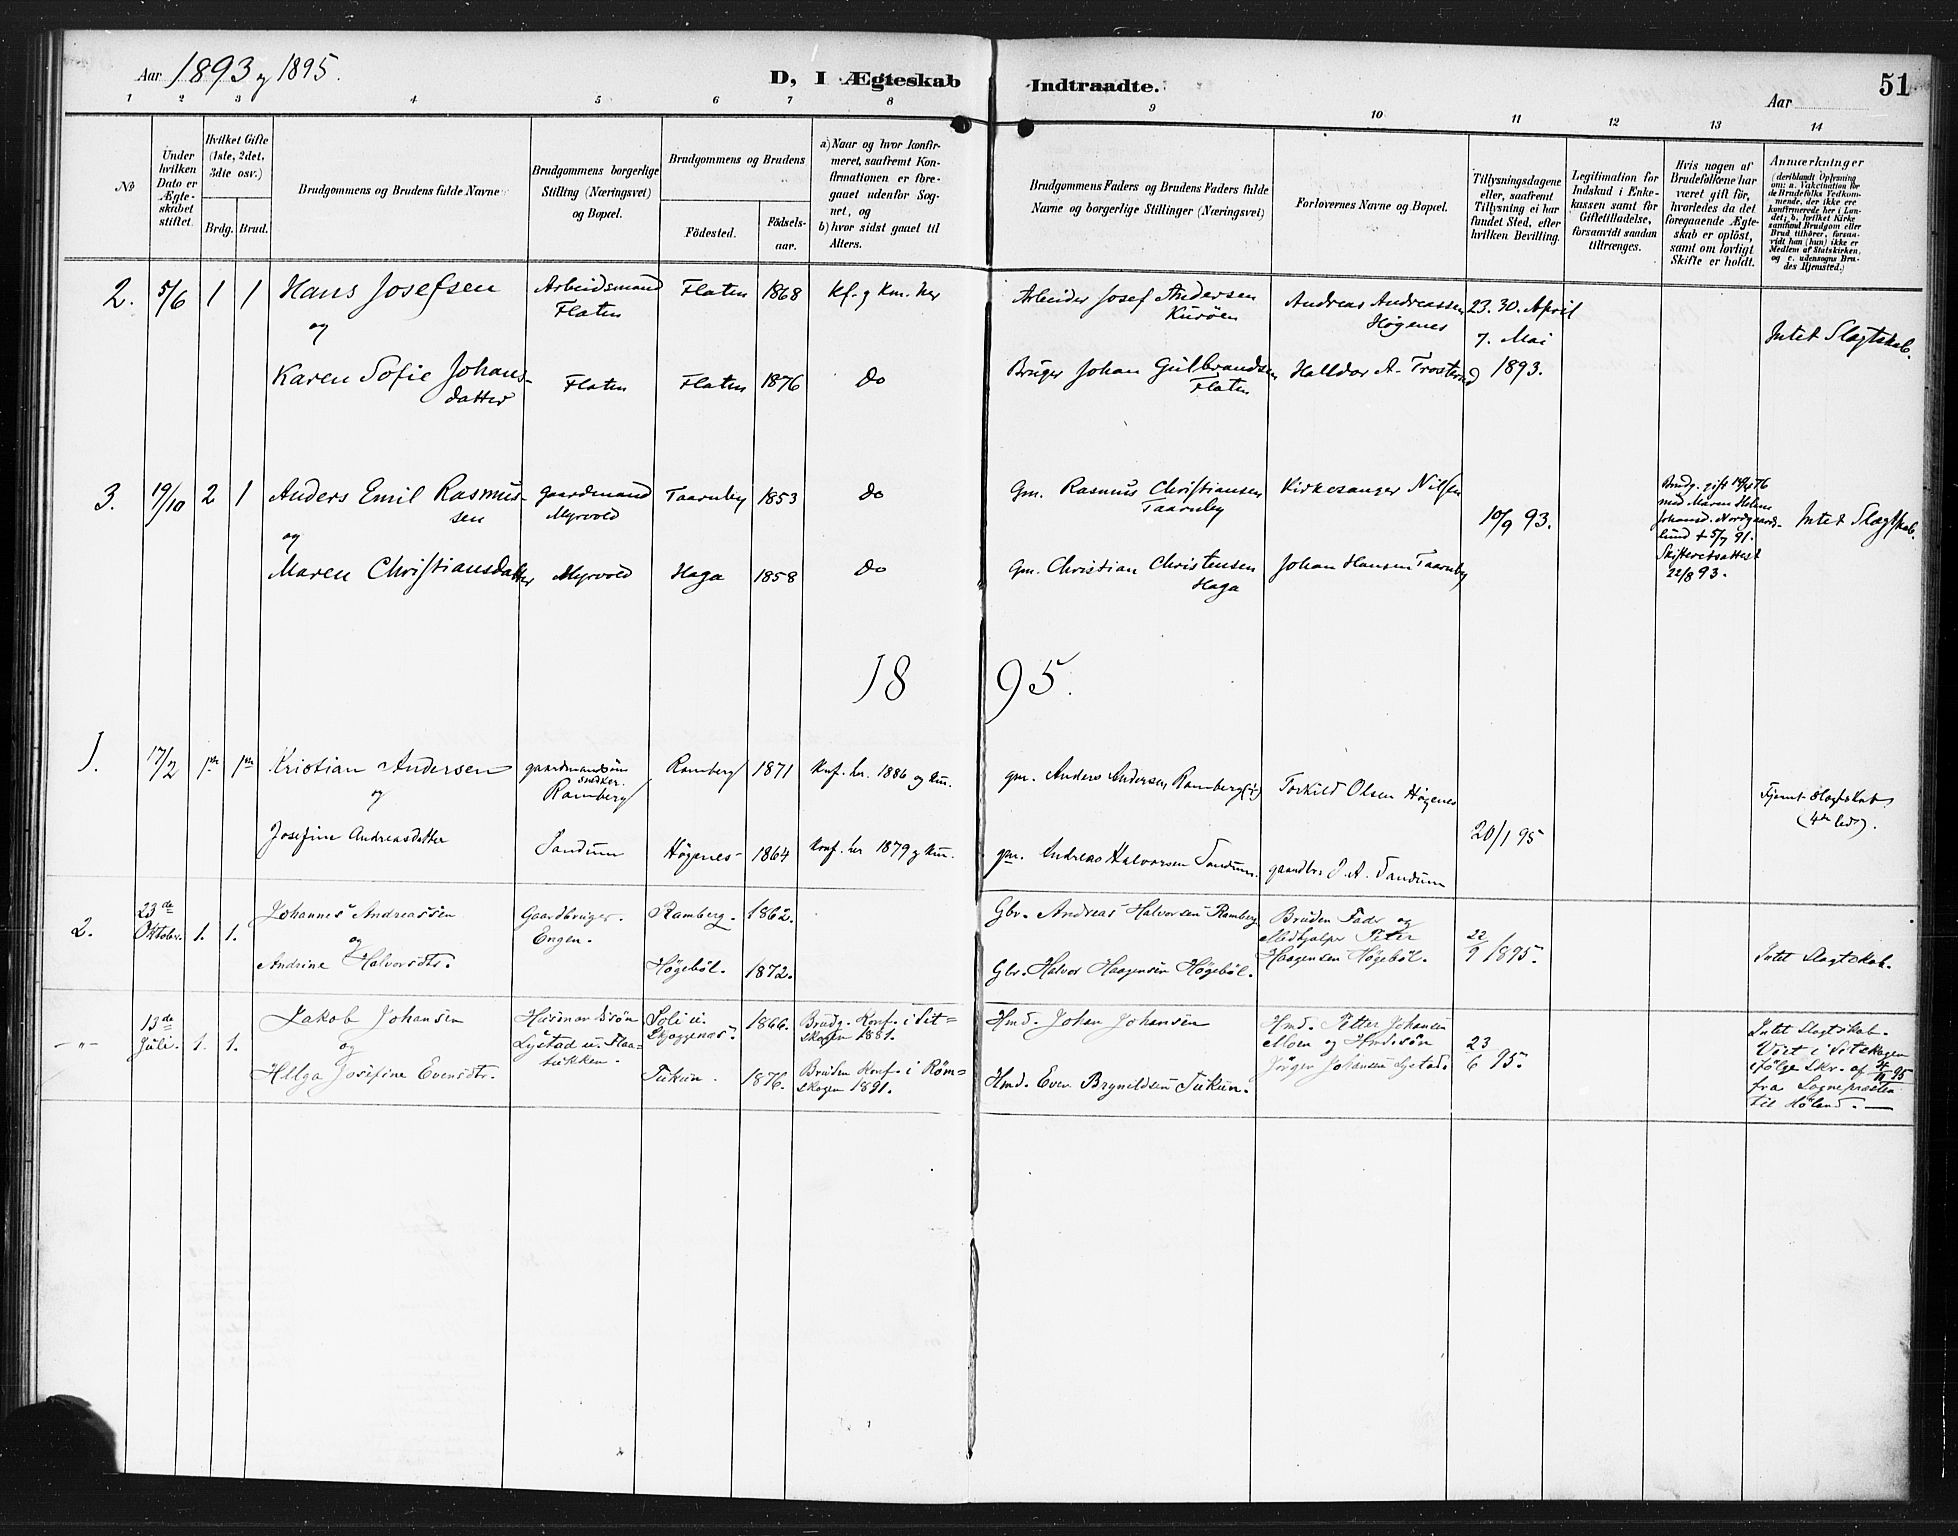 Aar 1893 og 1895.
D, I Ægteskab Indtraadte.
51
Aar
1 2 3 4 5 6 7 8 9 10 11 12 13 14
No
Under hvilken Dato er Ægteskabet stiftet.
Hvilket Gifte (1ste, 2det, 3dte osv.)
Brdg. Brud.
Brudgommens og Brudens fulde Navne
Brudgommens borgerlige Stilling (Næringsvei) og Bopæl.
Brudgommens og Brudens
Fødested.
Fødselsaar.
a) Naar og hvor konfirmeret, saafremt Konfirmationen er foregaaet udenfor Sognet, og
b) hvor sidst gaaet til Alters.
Brudgommens Faders og Brudens Faders fulde Navne og borgerlige Stillinger (Næringsvei)
Forlovernes Navne og Bopæl.
Tillysningsdagene eller, saafremt Tillysning ei har fundet Sted, efter hvilken Bevilling.
Legitimation for Indskud i Enkekassen samt for Giftetilladelse, forsaavidt saadan tiltrænges.
Hvis nogen af Brudefolkene har været gift før, hvorledes da det foregaaende Ægteskab er opløst, samt om lovligt Skifte er holdt.
Anmærkninger (deriblandt Oplysning om: a. Vakcination for de Brudefolks Vedkommende, der ikke ere konfirmerede her i Landet; b. hvilket Kirkesamfund Brudgom eller Brud tilhører, forsaavidt han (hun) ikke er Medlem af Statskirken, og c. udensogns Brudes Hjemsted.)
2. 5/6 1 1 Hans Josefsen Arbeidsmand Flaten Flaten 1868 Kf. og Km. her Arbeider Josef Andersen Kuröen Andreas Andreassen Høgenes 23. 30. April 7. Mai 1893. Intet Slagtskab.
og
Karen Sofie Johansdatter Flaten Flaten 1876 do Bruger Johan Gulbrandsen Flaten Halldor A. Trosterud
3. 19/10 2 1 Anders Emil Rasmussen gaardmand Myrvold Taarnby 1853 do Gm. Rasmus Christiansen Taarnby Kirkesanger Nilsen 10/9 93.
Brudg. gift 76 med Maren Helene Johansd. Nordgaardslund + 5/7 91. Skifteretsattest 22/8 93.
Intet Slagtskab.
og
Maren Christiansdatter Myrvold Haga 1858 do Gm. Christian Christensen Haga Johan Hansen Taarnby
1895.
1. 17/2 1ste 1ste Kristian Andersen gaardmandssön snedker Ramberg Ramberg 1871 Konf. her 1886 og Km. gm. Anders Andersen Ramberg (+) Torkild Olsen Høgenes 20/1 95 Fjernt Slagtskab (4de led).
og
Josefine Andreasdatter Sandum Høgenes 1864 Konf. her 1879 og Km. gm. Andreas Halvorsen Sandum. gaardbr. J. A. Sandum
2. 23de Oktober. 1. 1. Johannes Andreassen Gaardbruger. Engen. Ramberg. 1862. Gbr. Andreas Halvorsen Ramberg Bruden Fader og Medhjælper Peter Haagensen Høgeböl. 22/9 1895. Intet Slagtskab.
og
Andrine Halvorsdtr. Høgeböl. 1872. Gbr. Halvor Haagensen Høgeböl.
– " – 13de Juli. 1. 1. Jakob Johansen Lystad u. Soli u. Skjeggenæs. 1866. Brudg. Konf. i Setskogen 1881. Hmd. Johan Johansen Hmd. Petter Johansen Moen og Jörgen Johansen Lystad. 23/6 95.
og
Helga Josefine Evensdtr. Tukun. 1876. Bruden Konf. i Rømskogen 1891. Hmd. Even Brynildsen Tukun.
Intet Slagtskab.
Viet i Setskogen
ifølge Skr. af 95
fra Sognepræsten
til Høland. —